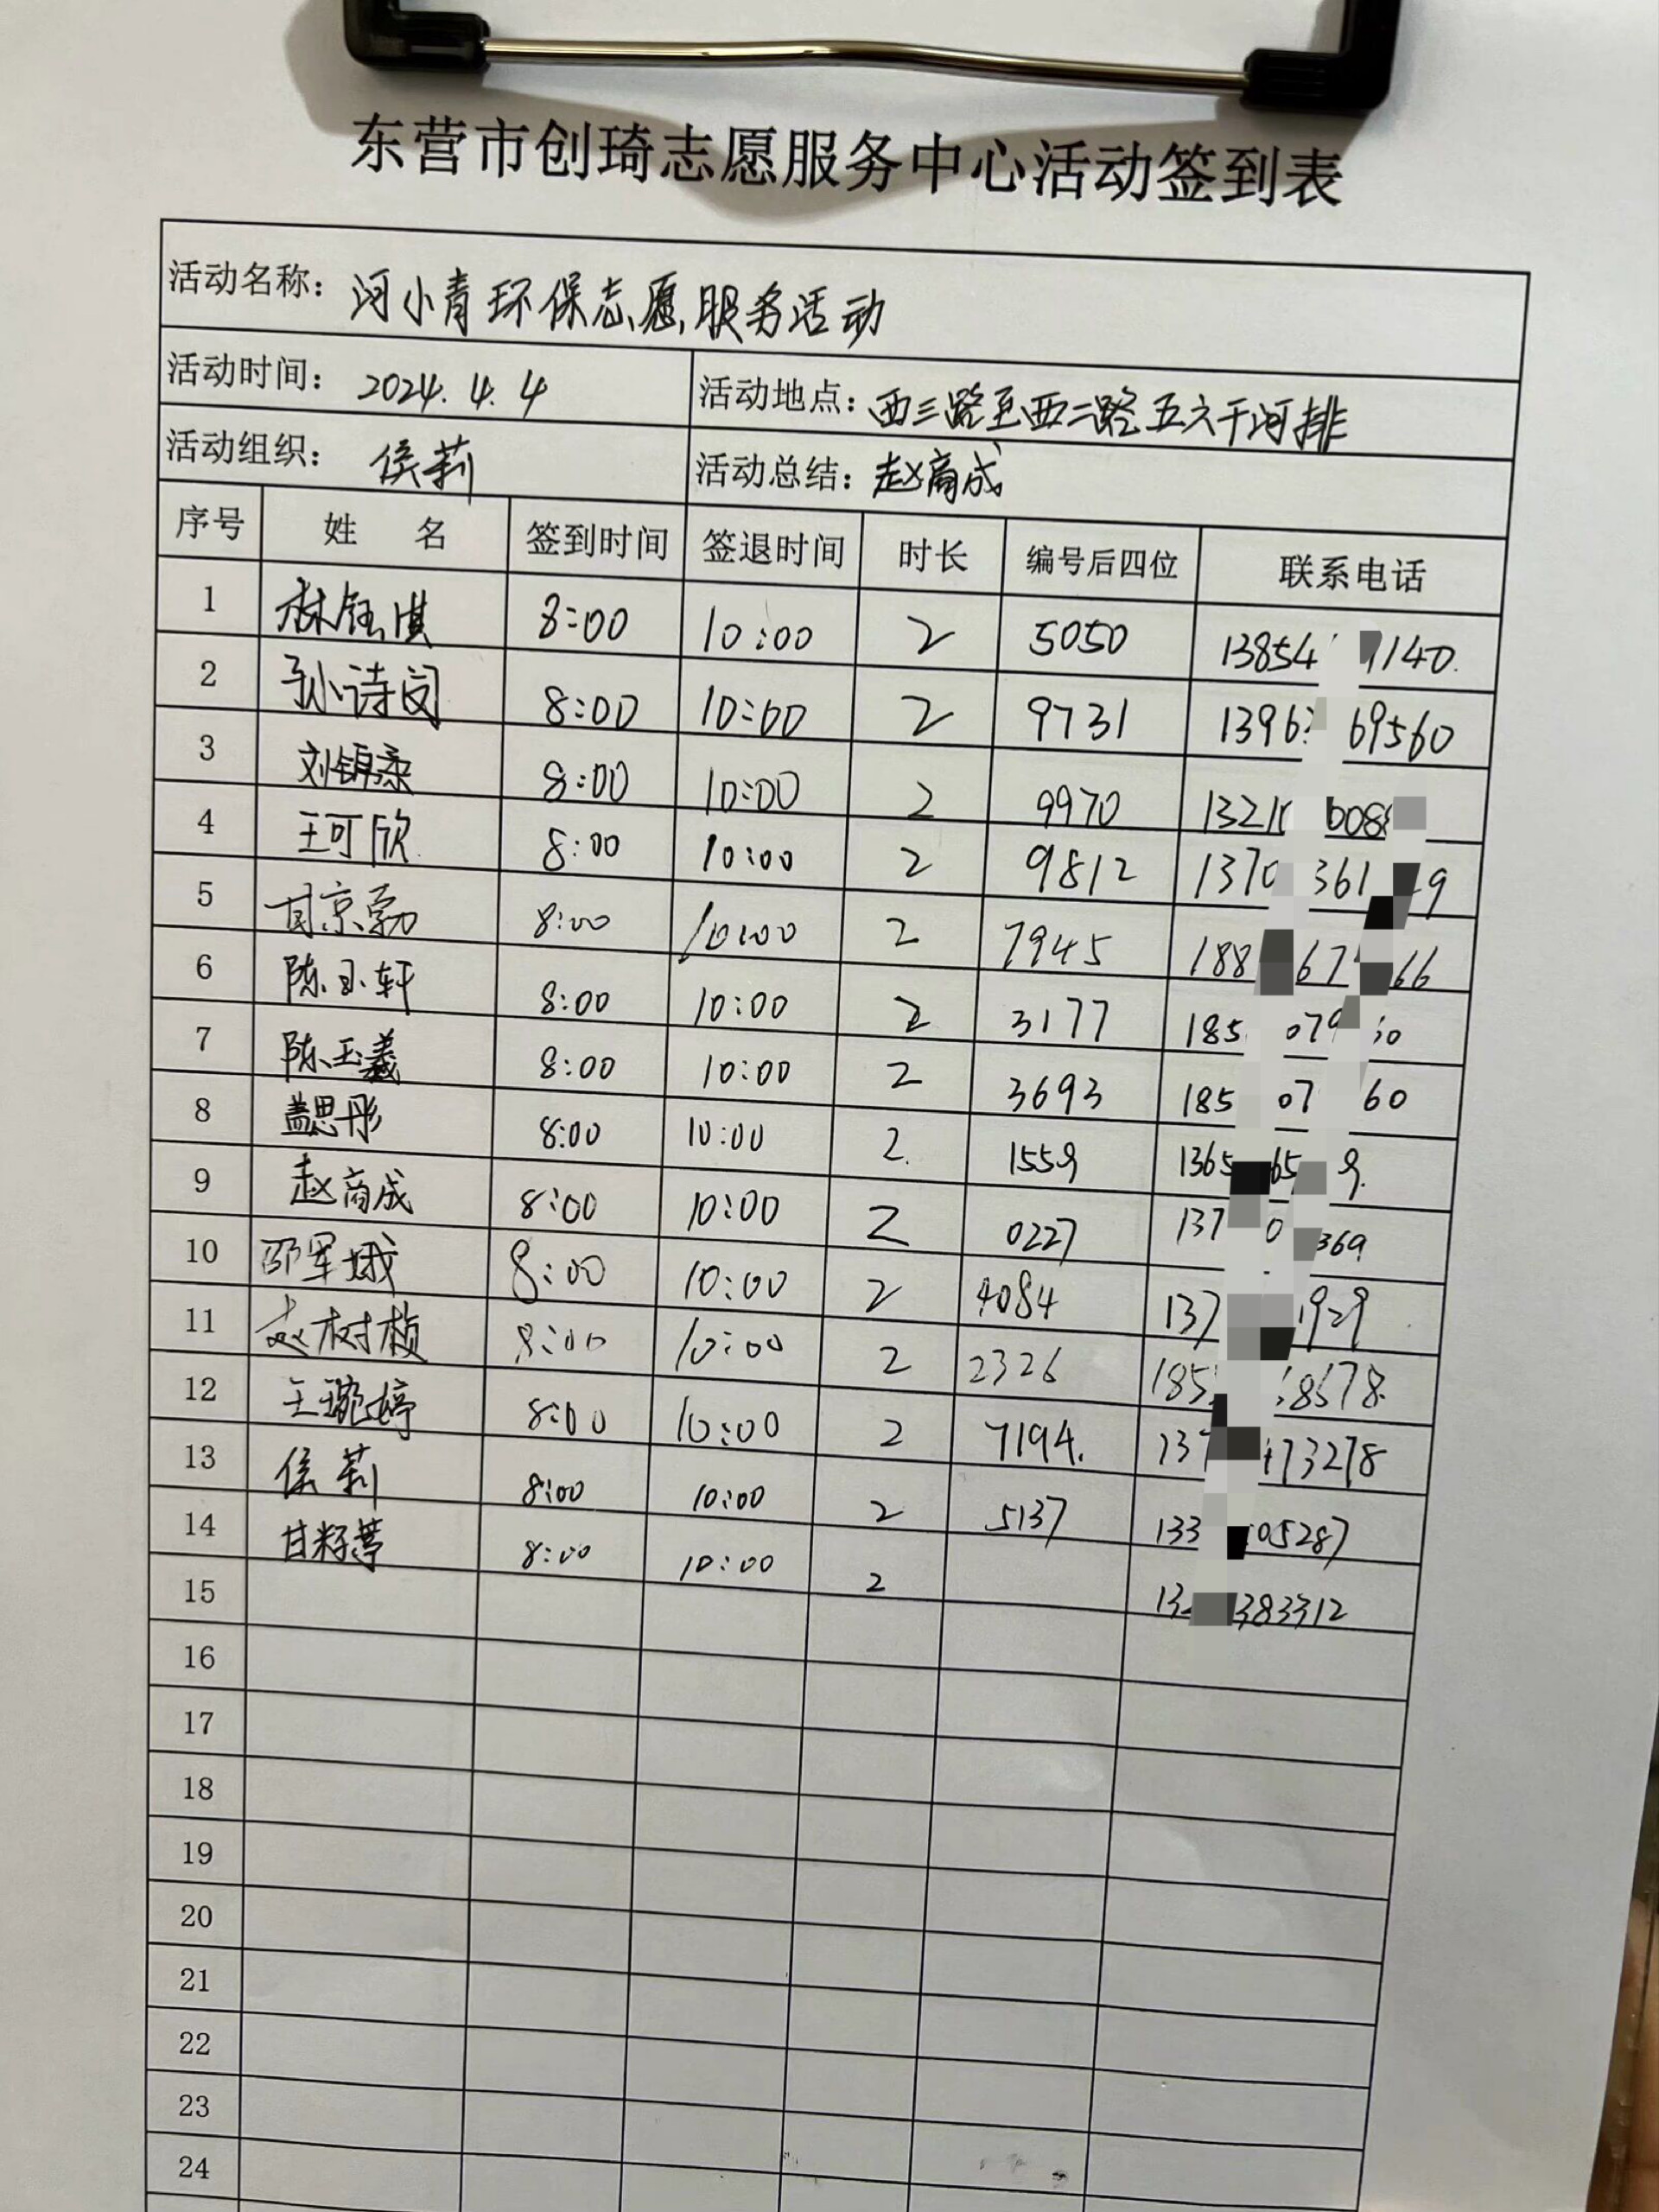 东营市创琦志愿服务中心活动签到表
活动名称：河小青环保志愿服务活动
活动时间：2024.4.4 活动地点：西三路至西二路五六干河排
活动组织：侯莉 活动总结：赵商成
序号 姓名 签到时间 签退时间 时长 编号后四位 联系电话
1 林钰淇 8:00 10:00 2 5050 13854 1140.
2 孙诗闵 8:00 10:00 2 9731 1396 69560
3 刘锦柔 8:00 10:00 2 9970 1321 008
4 王可欣 8:00 10:00 2 9812 1370 361 9
5 甘京勃 8:00 10:00 2 7945 188 67 66
6 陈玉轩 8:00 10:00 2 3177 185 079 0
7 陈玉羲 8:00 10:00 2 3693 185 07 60
8 盖思彤 8:00 10:00 2. 1559 1365 65 9.
9 赵商成 8:00 10:00 2 0227 137 0 369
10 邵军娥 8:00 10:00 2 4084 137 1929
11 赵树桢 8:00 10:00 2 2326 185 8678.
12 王琬婷 8:00 10:00 2 7194. 137 73278
13 侯莉 8:00 10:00 2 5137 133 05287
14 甘籽萼 8:00 10:00 2 13 383312
15
16
17
18
19
20
21
22
23
24